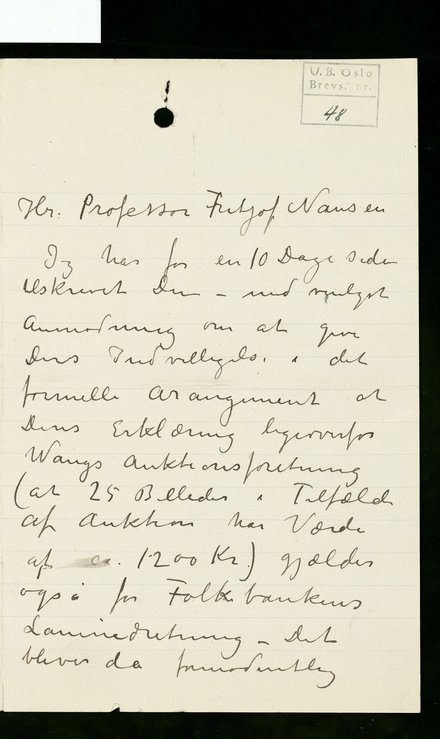 U.B. Oslo
Brevs. nr.
48
Hr. Professor Fritjof Nansen
Jeg har for en 10 Dage siden
tilskrevet Dem – med venligst
Anmodning om at give
Deres Indvilligelse i det
formelle Arangement at
Deres Erklæring ligeoverfor
Wangs Auktionsforetning
(at 25 Billeder i Tilfælde
af Auktion har Værdi
af ca. 1200 Kr.) gjælder
også for Folkebankens
Laaneindretning – Det
bliver da formodentlig